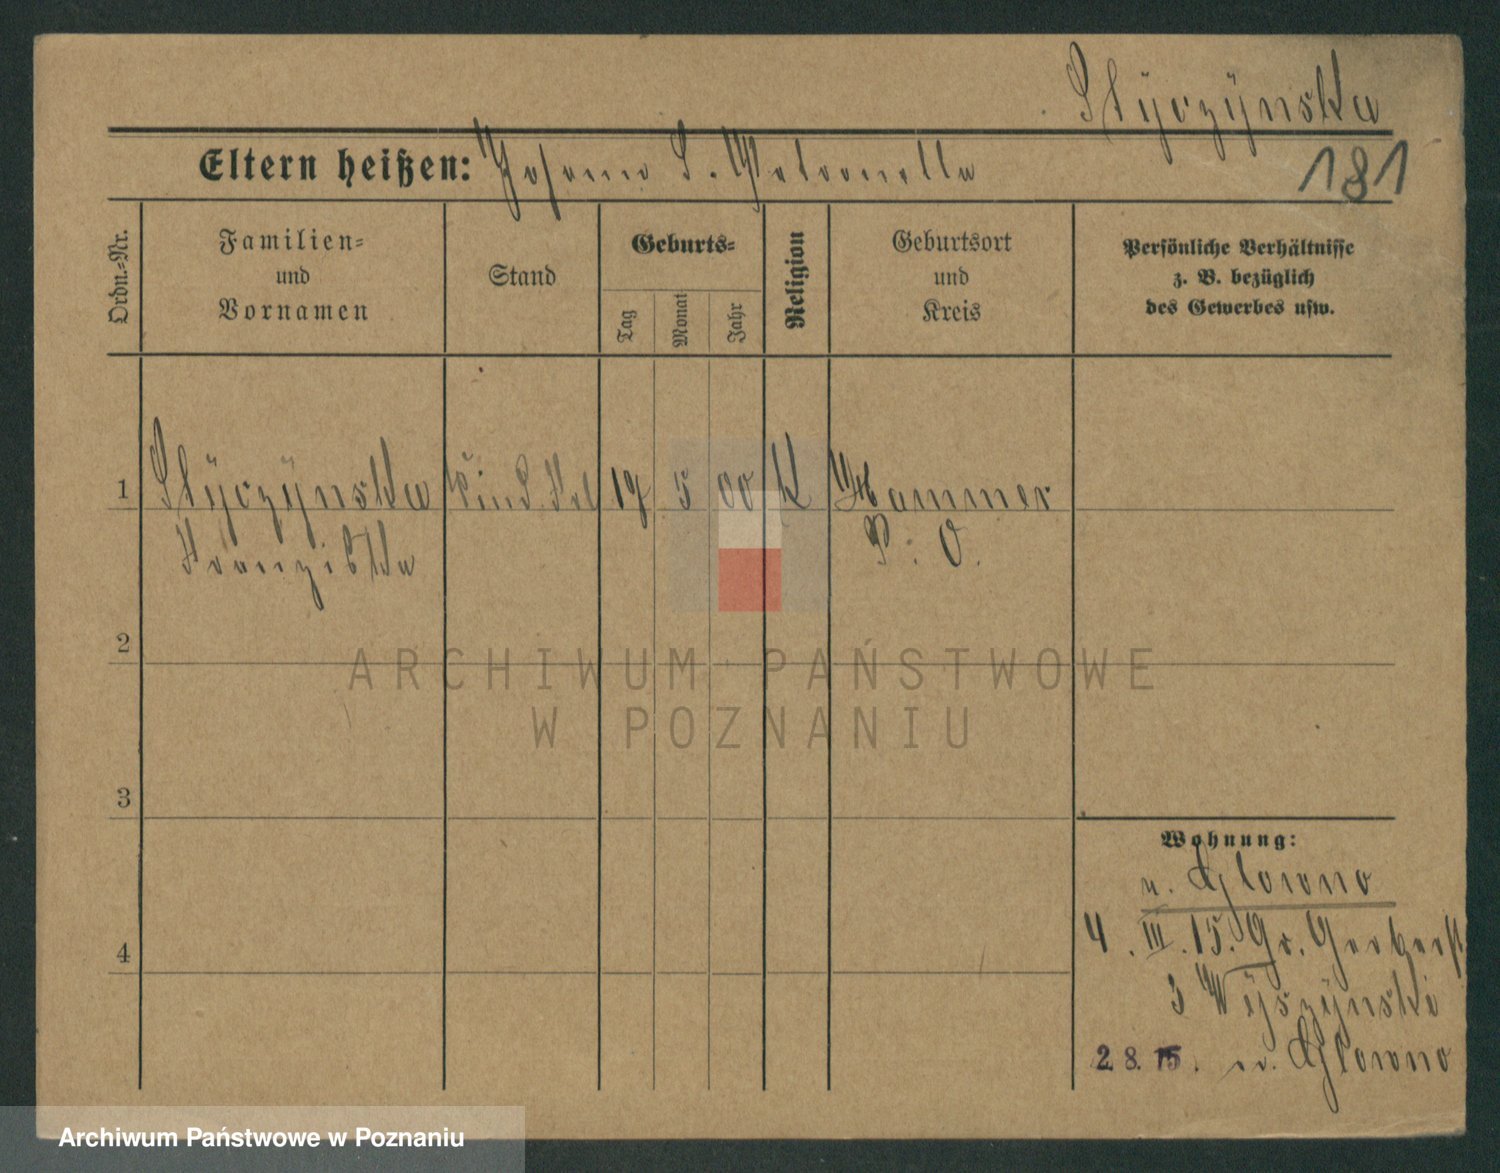 Styczynska
Eltern heißen: Johann S. Petronella
181
Ordn.-Nr.
Familien-
und
Vornamen
Stand
Geburts-
Tag
Monat
Jahr
Religion
Geburtsort
und
Kreis
Persönliche Verhältnisse
z. B. bezüglich
des Gewerbes usw.
1 Styczynska Kind. Frl 19 5 00 K Hammer
Franziska P. O.
2
3
4
ARCHIWUM PAŃSTWOWE
W POZNANIU
Wohnung:
n. Glowno
4. III. 15. Gr. Gerberst
3 Wyszynski
2. 8. 15. n. Glowno
Archiwum Państwowe w Poznaniu